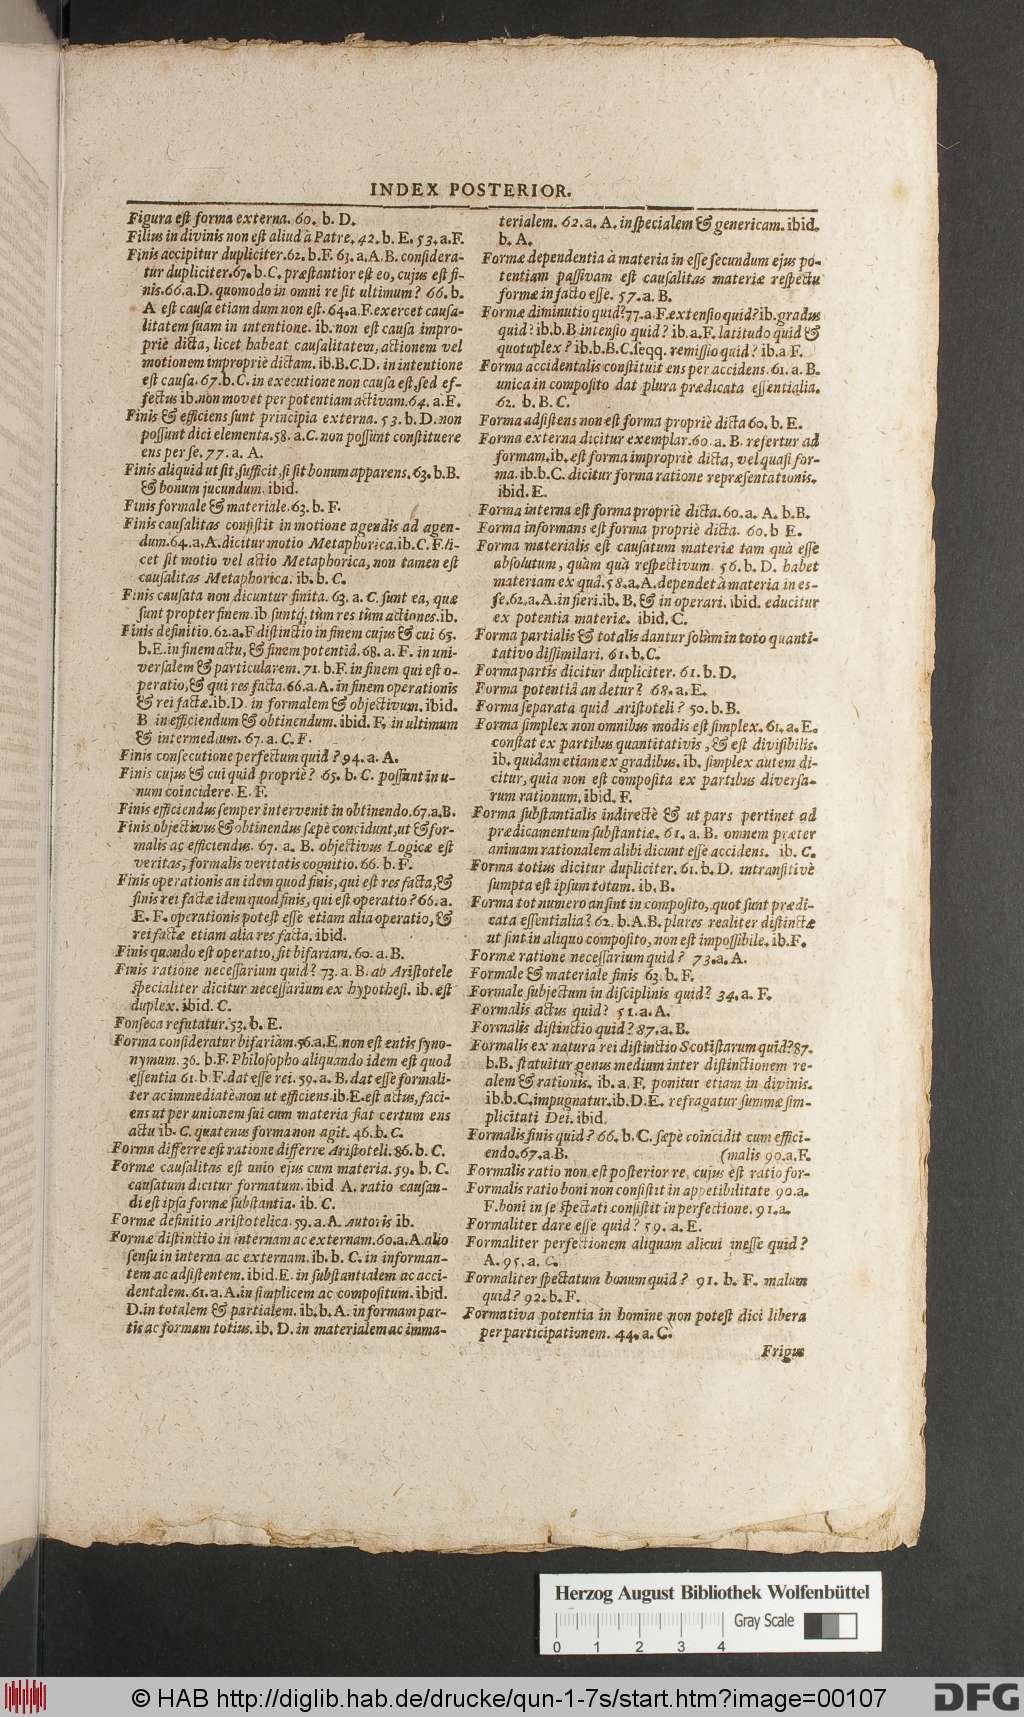 INDEX POSTERIOR.
Figura eſt forma externa. 60. b. D.
Filius in divinis non eſt aliud à Patre. 42. b. E. 53. a. F.
Finis accipitur dupliciter. 62. b. F. 63. a. A. B. conſidera-
tur dupliciter. 67. b. C. præſtantior eſt eo, cujus eſt fi-
nis. 66. a. D. quomodo in omni re ſit ultimum? 66. b.
A eſt cauſa etiam dum non eſt. 64. a. F. exercet cauſa-
litatem ſuam in intentione. ib. non eſt cauſa impro-
priè dicta, licet habeat cauſalitatem, actionem vel
motionem impropriè dictam. ib. B. C. D. in intentione
eſt cauſa. 67. b. C. in executione non cauſa eſt, ſed ef-
fectus ib. non movet per potentiam activam. 64. a. E.
Finis & efficiens ſunt principia externa. 53. b. D. non
poſſunt dici elementa. 58. a. C. non poſſunt conſtituere
ens per ſe. 77. a. A.
Finis aliquid ut ſit, ſufficit, ſi ſit bonum apparens. 63. b. B.
& bonum jucundum. ibid.
Finis formale & materiale. 63. b. F.
Finis cauſalitas conſiſtit in motione agendis ad agen-
dum. 64. a. A. dicitur motio Metaphorica. ib. C. F. li-
cet ſit motio vel actio Metaphorica, non tamen eſt
cauſalitas Metaphorica. ib. b. C.
Finis cauſata non dicuntur finita. 63. a. C. ſunt ea, quæ
ſunt propter finem. ib. ſuntq́; tùm res tùm actiones. ib.
Finis definitio. 62. a. F. diſtinctio in finem cujus & cui 65.
b. E. in finem actu, & finem potentiâ. 68. a. F. in uni-
verſalem & particularem. 71. b. F. in finem qui eſt o-
peratio, & qui res facta. 66. a. A. in finem operationis
& rei factæ. ib. D. in formalem & objectivum. ibid.
B in efficiendum & obtinendum. ibid. F. in ultimum
& intermedium. 67. a. C. F.
Finis conſecutione perfectum quid? 94. a. A.
Finis cujus & cui quid propriè? 65. b. C. poſſunt in u-
num coincidere. E. F.
Finis efficiendus ſemper intervenit in obtinendo. 67. a. B.
Finis objectivus & obtinendus ſæpè concidunt, ut & for-
malis ac efficiendus. 67. a. B. objectivus Logicæ eſt
veritas, formalis veritatis cognitio. 66. b. F.
Finis operationis an idem quod finis, qui eſt res facta, &
finis rei factæ idem quod finis, qui eſt operatio? 66. a.
E. F. operationis poteſt eſſe etiam alia operatio, &
rei factæ etiam alia res facta. ibid.
Finis quando eſt operatio, ſit bifariam. 60. a. B.
Finis ratione neceſſarium quid? 73. a. B. ab Ariſtotele
ſpecialiter dicitur neceſſarium ex hypotheſi. ib. eſt
duplex. ibid. C.
Fonſeca refutatur. 53. b. E.
Forma conſideratur bifariam. 56. a. E. non eſt entis ſyno-
nymum. 36. b. F. Philoſopho aliquando idem eſt quod
eſſentia 61. b. F. dat eſſe rei. 59. a. B. dat eſſe formali-
ter ac immediatè, non ut efficiens. ib. E. eſt actus, faci-
ens ut per unionem ſui cum materia fiat certum ens
actu ib. C. quatenus forma non agit. 46. b. C.
Forma differre eſt ratione differre Ariſtoteli. 86. b. C.
Formæ cauſalitas eſt unio ejus cum materia. 59. b. C.
cauſatum dicitur formatum. ibid A. ratio cauſan-
di eſt ipſa formæ ſubſtantia. ib. C.
Formæ definitio Ariſtotelica. 59. a. A. Autoris ib.
Formæ diſtinctio in internam ac externam. 60. a. A. alio
ſenſu in interna ac externam. ib. b. C. in informan-
tem ac adſiſtentem. ibid. E. in ſubſtantialem ac acci-
dentalem. 61. a. A. in ſimplicem ac compoſitum. ibid.
D. in totalem & partialem. ib. b. A. in formam par-
tis ac formam totius. ib. D. in materialem ac imma-
terialem. 62. a. A. in ſpecialem & genericam. ibid.
b. A.
Formæ dependentia à materia in eſſe ſecundum ejus po-
tentiam paſſivam eſt cauſalitas materiæ reſpectu
formæ in facto eſſe. 57. a. B.
Formæ diminutio quid? 77. a F. extenſio quid? ib. gradus
quid? ib. b. B intenſio quid? ib. a. F. latitudo quid &
quotuplex? ib. b. B. C. ſeqq. remiſſio quid? ib. a F.
Forma accidentalis conſtituit ens per accidens. 61. a. B.
unica in compoſito dat plura prædicata eſſentialia.
62. b. B. C.
Forma adſiſtens non eſt forma propriè dicta 60. b. E.
Forma externa dicitur exemplar. 60. a. B. refertur ad
formam. ib. eſt forma impropriè dicta, vel quaſi for-
ma. ib. b. C. dicitur forma ratione repræſentationis.
ibid. E.
Forma interna eſt forma propriè dicta. 60. a. A. b. B.
Forma informans eſt forma propriè dicta. 60. b E.
Forma materialis eſt cauſatum materiæ tam quà eſſe
abſolutum, quàm quà reſpectivum. 56. b. D. habet
materiam ex quâ. 58. a. A. dependet à materia in eſ-
ſe. 62. a. A. in fieri. ib. B. & in operari. ibid. educitur
ex potentia materiæ. ibid. C.
Forma partialis & totalis dantur ſolùm in toto quanti-
tativo diſſimilari. 61. b. C.
Forma partis dicitur dupliciter. 61. b. D.
Forma potentiâ an detur? 68. a. E.
Forma ſeparata quid Ariſtoteli? 50. b. B.
Forma ſimplex non omnibus modis eſt ſimplex. 61. a. E.
conſtat ex partibus quantitativis, & eſt diviſibilis.
ib. quidam etiam ex gradibus. ib. ſimplex autem di-
citur, quia non eſt compoſita ex partibus diverſa-
rum rationum. ibid. F.
Forma ſubſtantialis indirectè & ut pars pertinet ad
prædicamentum ſubſtantiæ. 61. a. B. omnem præter
animam rationalem alibi dicunt eſſe accidens. ib. C.
Forma totius dicitur dupliciter. 61. b. D. intranſitivè
ſumpta eſt ipſum totum. ib. B.
Forma tot numero an ſint in compoſito, quot ſunt prædi-
cata eſſentialia? 62. b. A. B. plures realiter diſtinctæ
ut ſint in aliquo compoſito, non eſt impoſſibile. ib. F.
Formæ ratione neceſſarium quid? 73. a. A.
Formale & materiale finis 63. b. F.
Formale ſubjectum in diſciplinis quid? 34. a. F.
Formalis actus quid? 51. a. A.
Formalis diſtinctio quid? 87. a. B.
Formalis ex natura rei diſtinctio Scotiſtarum quid? 87.
b. B. ſtatuitur genus medium inter diſtinctionem re-
alem & rationis. ib. a. F. ponitur etiam in divinis.
ib. b. C. impugnatur. ib. D. E. refragatur ſummæ ſim-
plicitati Dei. ibid.
Formalis finis quid? 66. b. C. ſæpè coincidit cum effici-
endo. 67. a. B. (malis 90. a. F.
Formalis ratio non eſt poſterior re, cujus eſt ratio for-
Formalis ratio boni non conſiſtit in appetibilitate 90. a.
F. boni in ſe ſpectati conſiſtit in perfectione. 91. a.
Formaliter dare eſſe quid? 59. a. E.
Formaliter perfectionem aliquam alicui ineſſe quid?
A. 95. a. C.
Formaliter ſpectatum bonum quid? 91. b. F. malum
quid? 92. b. F.
Formativa potentia in homine non poteſt dici libera
per participationem. 44. a. C.
Frigus
Herzog August Bibliothek Wolfenbüttel
Gray Scale
0 1 2 3 4
© HAB http://diglib.hab.de/drucke/qun-1-7s/start.htm?image=00107
DFG